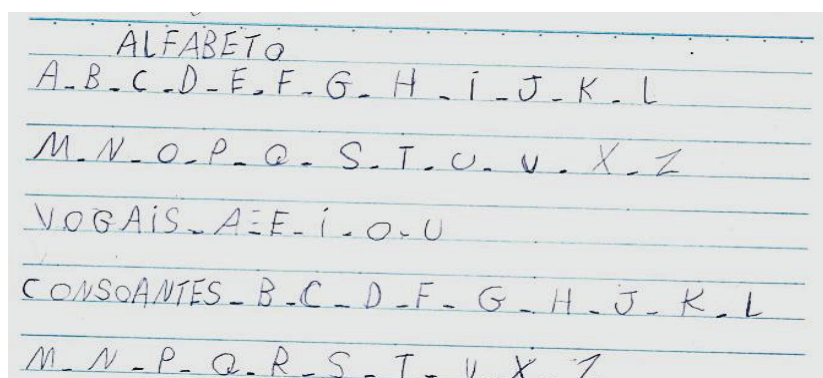 ALFABETO
A-B-C-D-E-F-G-H-i-J-K-L
M-N-O-P-Q-S-T-U-V-X-Z
VOGAiS-A-E-i-O-U
CONSOANTES-B-C-D-F-G-H-J-K-L
M-N-P-Q-R-S-T-V-X-Z